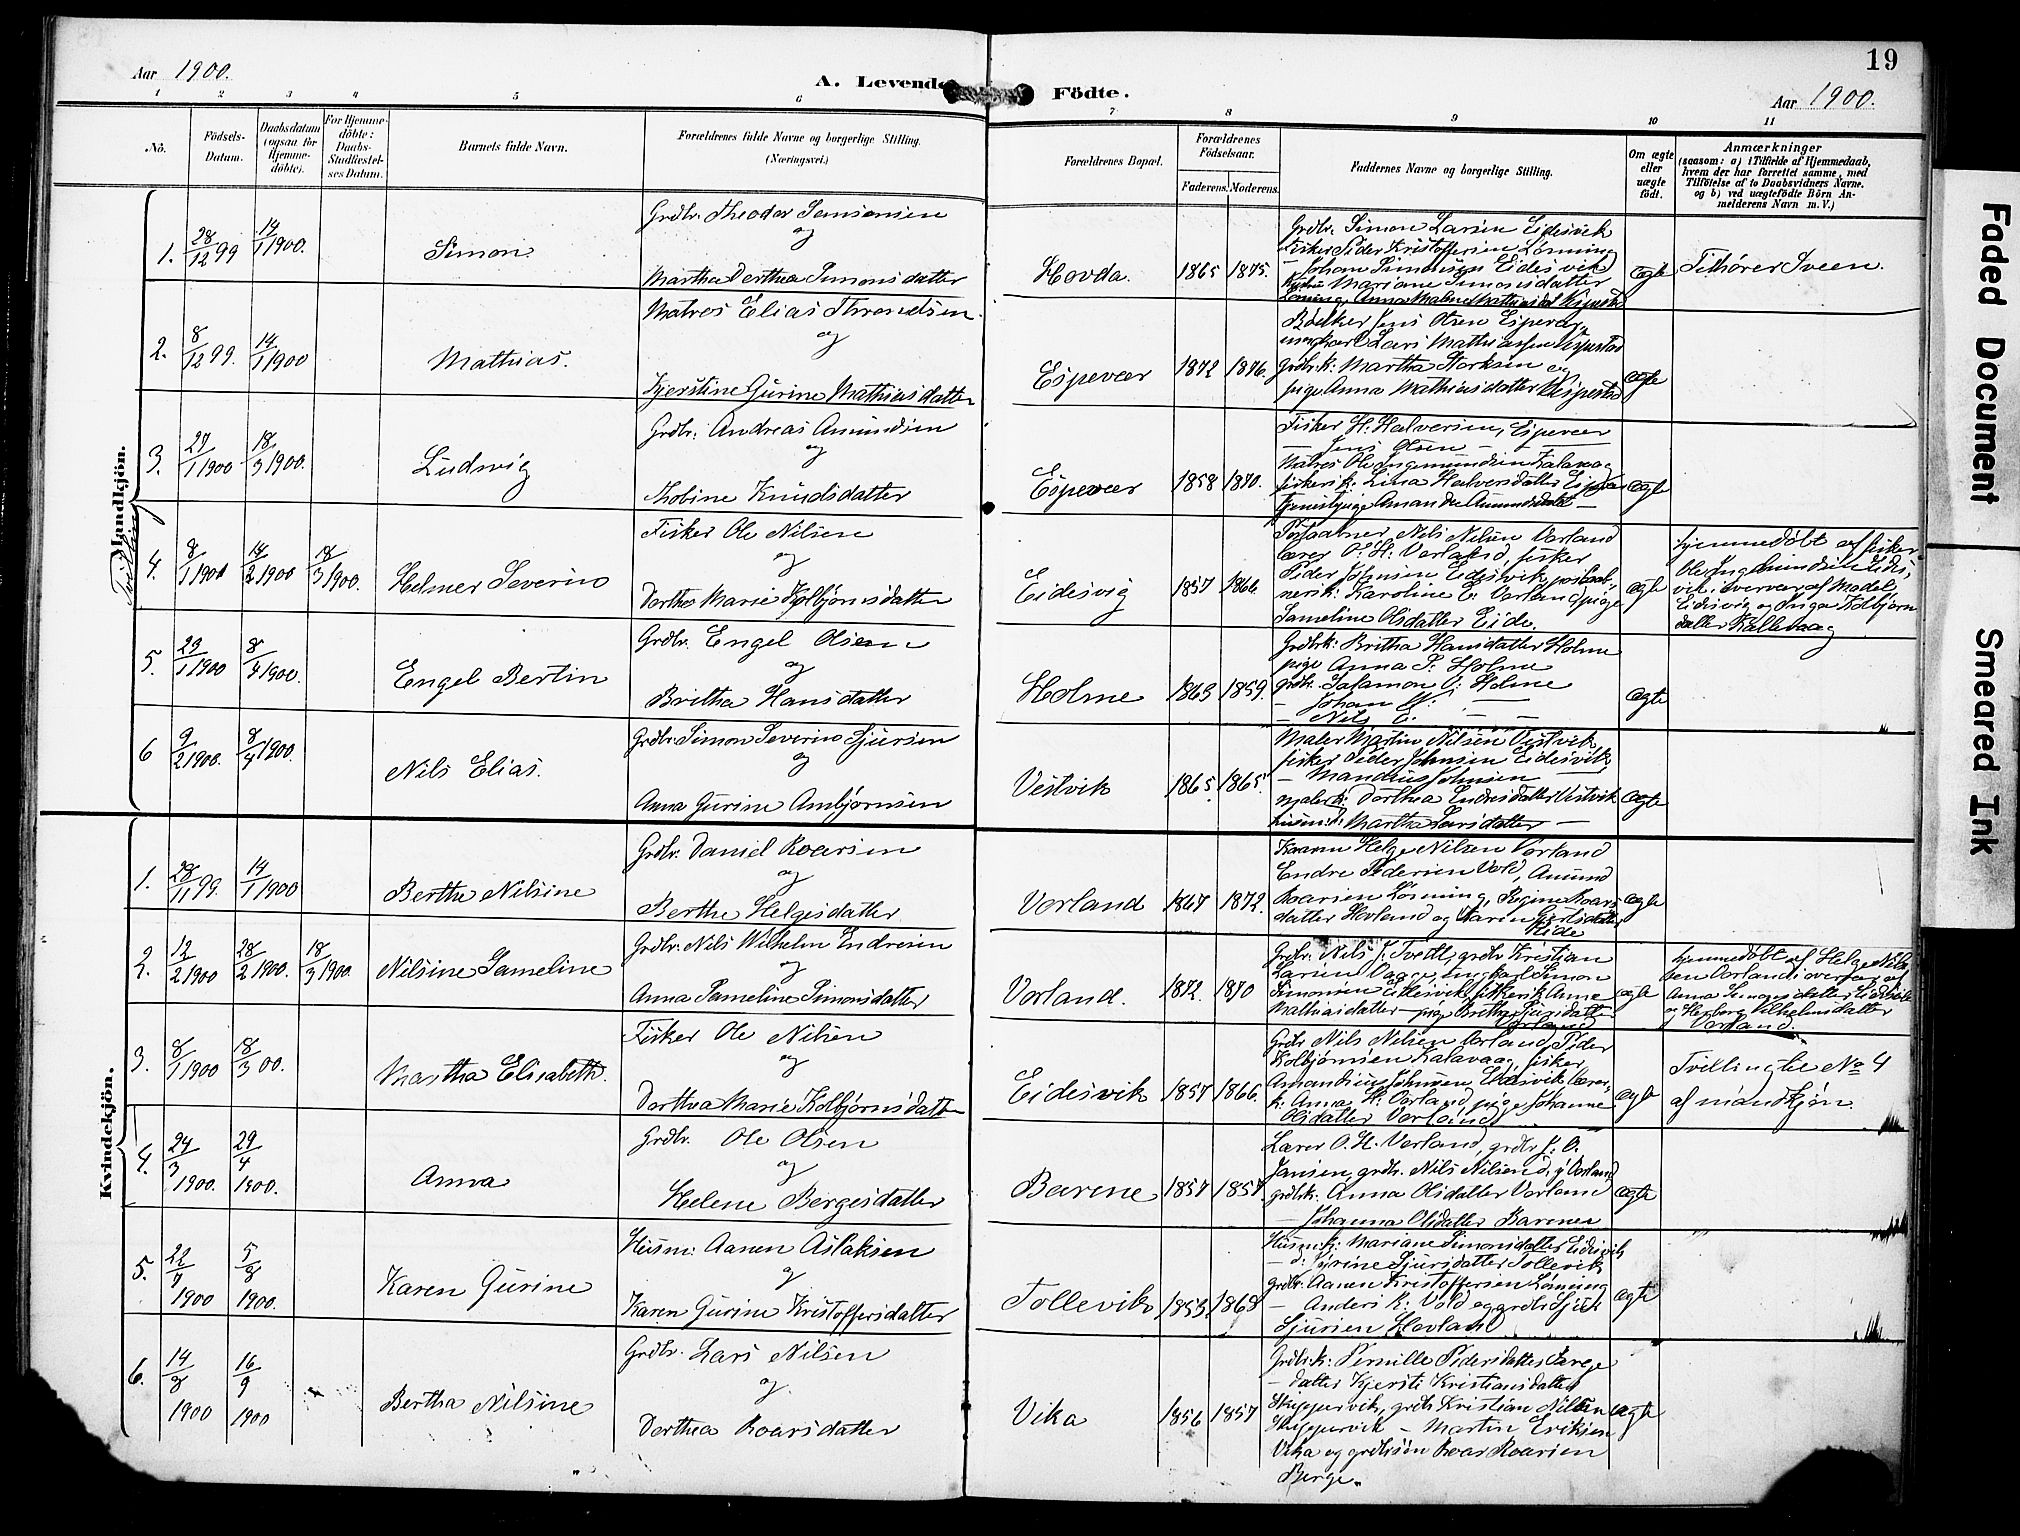 19
Aar 1900.
A. Levende Födte.
Aar 1900.
1 2 3 4 5 6 7 8 9 10 11
No.
Födsels-Datum.
Daabsdatum (ogsaa for Hjemme-döbte).
For Hjemme-döbte: Daabs-Stadfæstel-ses Datum.
Barnets fulde Navn.
Forældrenes fulde Navne og borgerlige Stilling. (Næringsvei.)
Forældrenes Bopæl.
Forældrenes Födselsaar.
Faderens. Moderens.
Faddernes Navne og borgerlige Stilling.
Om ægte eller uægte födt.
Anmærkninger
(saasom: a) i Tilfælde af Hjemmedaab,
hvem der har forrettet samme, med
Tilföielse af to Daabsvidners Navne.
og b) ved uægtefödte Börn An-
melderens Navn m. V.)
Mandkjön.
1. 28/12 99 14/1 1900. Simon.
Grdbr. Theodor Samsonsen
og
Martha Derthea Simonsdatter
Hovda. 1865 1875.
Grdbr. Simon Larsen Eidesvik
Fisker Peder Kristoffersen Lønning
— Johan Simonsen Eidesvik
Mariane Simonsdatter
Lønning, Anna Malene
ægte
Tilhører Sveen.
2. 8/12 99. 14/1 1900 Mathias.
Matros Elias Throndsen
og
Kjerstine Gurine Mathiasdatter
Espevær 1872 1876.
Bødker Jens Olsen Espevær,
ungkarl Lars Mathiassen
grdbr.k: Martha Storksen og
pige Anna Mathiasdatter
ægte
3. 27/1 1900 18/3 1900. Ludvig
Grdbr. Andreas Amundsen
og
Thobine Knudsdatter
Espevær 1858 1870.
Fisker H. Halversen, Espevær
— Jens Olsen —
Matros Ole Ingemundsen Kalavaag
fiskersk: Lina Halversdatter
Tjenestpige Amanda Amundsdatter —
ægte
Tvilling
4. 8/1 1900 14/2 1900 18/3 1900. Helmer Severin
Fisker Ole Nilsen
og
Dorthea Marie Kolbjørnsdatter
Eidesvig 1857 1866.
Postaabner Nils Nilsen Vorland
lærer O. H. Vorland, fisker
Peder Johnsen Eidesvik, postaab-
nersk: Karoline E. Vorland, pige
Sameline Olsdatter Eide.
ægte
hjemmedøbt af fisker
Ole Ingemundsen Eides-
vik, i overvær af Madel
Eidesvig og Inga Kolbjørn
datter Kallevaag
5. 23/1 1900 8/4 1900. Engel Bertin
Grdbr. Engel Olsen
og
Britha Hansdatter
Holme 1863 1859.
Grdbrk: Britha Hansdatter Holme
pige Anna S. Holme
grdbr. Salamon O: Holme
— Johan —
— Nils E. — —
ægte
6 9/2 1900. 8/4 1900. Nils Elias.
Grdbr. Simon Severin Sjursen
og
Anna Gurine Ambjørnsen
Vestvik 1865. 1865.
Maler Martin Nilsen Vestvik
fisker Peder Johnsen Eidesvik
— Mandrus Johnsen —
malerk: Dorthea Endresdatter Vestvik
husm.k: Martha Larsdatter —
ægte
Kvindekjön.
1. 28/11 99. 14/1 1900 Berthe Nilsine
Grdbr. Daniel Roarsen
og
Berthe Helgesdatter
Vorland 1867 1872.
Kaarm Helge Nilsen Vorland
Endre Pedersen Vold, Amund
Roarsen Lønning, Regine Roars-
datter Hovland og Karen Carlsdatter
Eide
ægte
2. 12/2 1900 28/2 1900. 18/3 1900. Nilsine Sameline
Grdbr. Nils Wilhelm Endresen
og
Anna Sameline Simonsdatter
Vorland. 1872. 1870
Grdbr. Nils J. Tvedt, grdbr Kristian
Larsen Vaage, ungkarl Simon
Simonsen Eidesvik, fiskerk. Anne
Mathiasdatter — pige Britha Sjursdatter
Vorland
ægte
hjemmedøbt af Helge Nil-
sen Vorland i overvær af
Anna Simonsdatter Eidesvik
og Herborg Vilhelmsdatter
Vorland.
3. 8/1 1900 18/3 00. Martha Elisabeth.
Fisker Ole Nilsen
og
Dorthea Marie Kolbjørnsdatt
Eidesvik 1857 1866.
Grdbr Nils Nilsen Vorland, Peder
Kolbjørnsen Kalavaag, fisker
Amandius Johnsen, Eidesvik, lærer-
k. Anna H. Vorland, pige Johanne
Olsdatter Vorland
ægte
Tvilling til No 4
af mandkjøn.
4. 24/3 1900. 29/4 1900. Anna
Grdbr. Ole Olsen
og
Helene Bergesdatter
Barene 1857 1857.
Lærer O. H. Vorland, grdbr J. O.
Jansen, grdbr. Nils Nilsen d. y. Vorland
grdbrk: Anna Olsdatter Vorland
— Johanna Olsdatter Barene
ægte
5. 22/7 1900 5/8 1900. Karen Gurine
Husm: Aanen Aslaksen
og
Karen Gurine Kristoffersdatter
Tollevik 1853. 1863
Husm.k: Mariane Simonsdatter Eidesvik
— d: Syrine Sjursdatter Tollevik
grdbr. Aanen Kristoffersen Lønning
— Anders K: Vold og grdbr Sjur
Sjursen Hovland
ægte
6. 14/8 1900 16/9 1900 Bertha Nilsine
Grdbr. Lars Nilsen
og
Dorthea Roarsdatter
Vika 1856 1857
Grdbr.k: Pernille Pedersdatter
— datter Kjersti Kristiansdatter
Skippervik, grdb Kristian Nilsen
Skippervik — Martin Eriksen
Vika og grdbrsøn Roar Roarsen
Berge.
ægte
Faded Document
Smeared Ink